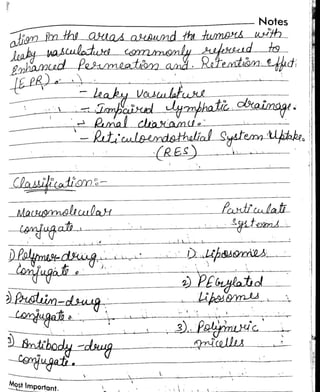 Notes
ation in the areas around the tumors with
leaky vasculature commonly refered to
Enhanced Permeation and Retention effect
(EPR).
- Leaky vasculature
- Impaired lymphatic drainage.
- Renal clearance.
- Reticuloendothelial System Uptake.
(RES)
Classification:-
Macromolecular conjugate.
1) Polymer-drug conjugate.
2) Protein-drug conjugate.
3) Antibody-drug conjugate.
Particulate systems
1). Liposomes.
2) PEGylated Liposomes.
3). Polymeric micelles
Most Important.